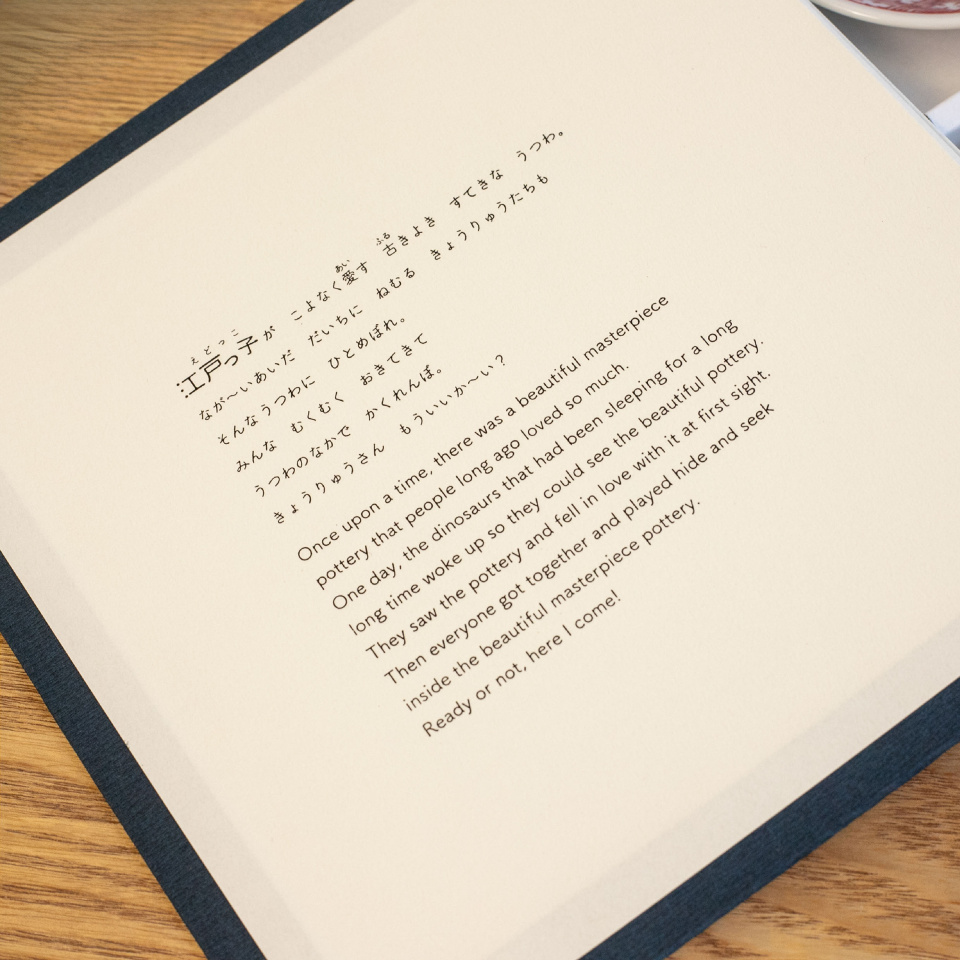 えどっこ
江戸っ子が こよなく愛す 古きよき すてきな うつわ。
あい
ふる
なが〜いあいだ だいちに ねむる きょうりゅうたちも
そんなうつわに ひとめぼれ。
みんな むくむく おきてきて
うつわのなかで かくれんぼ。
きょうりゅうさん もういいか〜い？
Once upon a time, there was a beautiful masterpiece
pottery that people long ago loved so much.
One day, the dinosaurs that had been sleeping for a long
long time woke up so they could see the beautiful pottery.
They saw the pottery and fell in love with it at first sight.
Then everyone got together and played hide and seek
inside the beautiful masterpiece pottery.
Ready or not, here I come!